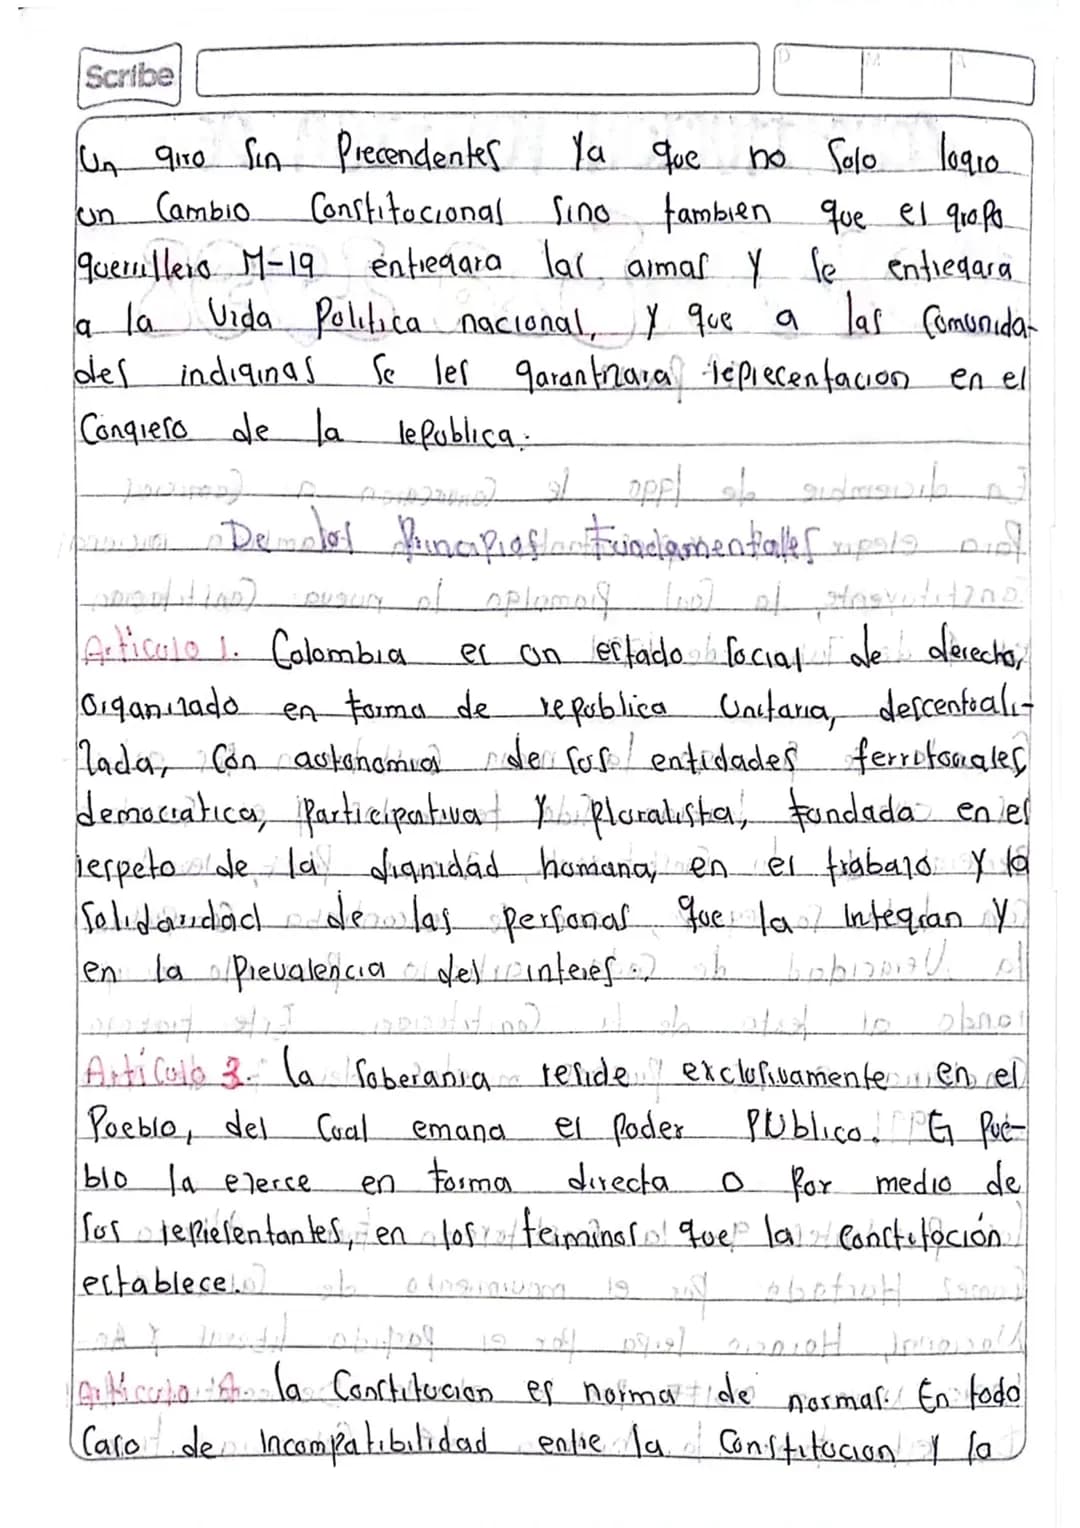 Scribe
D M A
Un giro sin Precendentes Ya que no solo logro
un Cambio Constitucional sino tambien que el grupo
guerrillero M-19 entregara las armas y se entregara
a la Vida Politica nacional, y que a las Comunida-
des indiginas se les garantizara reprecentacion en el
Congreso de la republica.
De los Principios Fundamentales
Articulo 1. Colombia es un estado social de derecho,
Organizado en forma de republica Unitaria, descentrali-
zada, Con autonomia de sus entidades territoriales,
democratica, Participativa Y Pluralista, fundada en el
respeto de la dignidad humana, en el trabajo y la
Solidaridad de las personas que la integran y
en la Prevalencia del interes.
Artículo 3. la soberania reside exclusivamente en el
Pueblo, del Cual emana el Poder PUblico. El Pue-
blo la ejerce en forma directa o Por medio de
sus representantes, en los terminos que la Constitución
establece.
Articulo 4. la Constitucion es norma de normas. En todo
Caso de Incompatibilidad entre la Constitucion y la